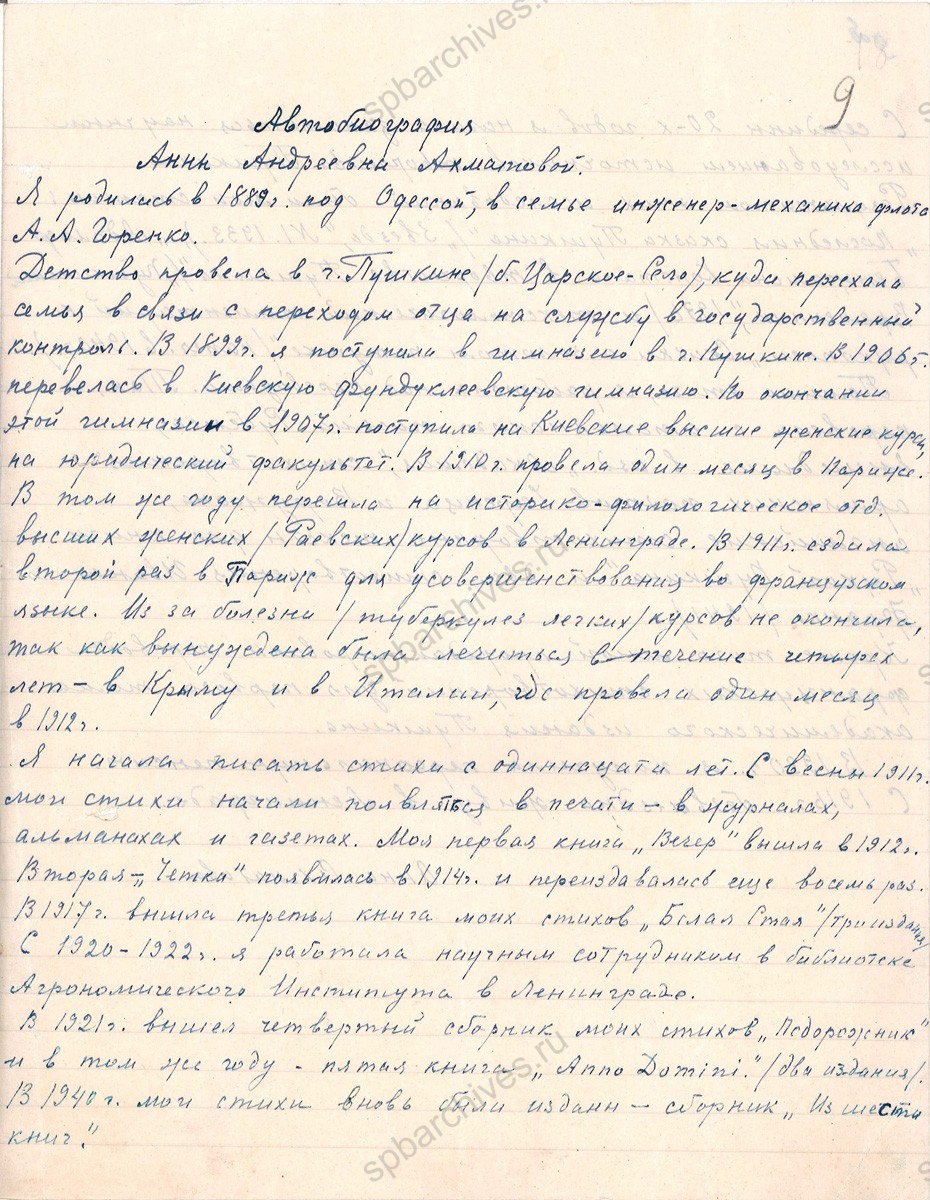 9
Автобиография
Анны Андреевны Ахматовой.
Я родилась в 1889г. под Одессой, в семье инженер-механика флота
А. А. Горенко.
Детство провела в г. Пушкине /б. Царское-Село/, куда переехала
семья в связи с переходом отца на службу в государственный
контроль. В 1899г. я поступила в гимназию в г. Пушкине. В 1906г.
перевелась в Киевскую Фундуклеевскую гимназию. По окончании
этой гимназии в 1907г. поступила на Киевские высшие женские курсы,
на юридический факультет. В 1910г. провела один месяц в Париже.
В том же году перешла на историко-филологическое отд.
высших женских /Раевских/ курсов в Ленинграде. В 1911г. ездила
второй раз в Париж для усовершенствования во французском
языке. Из за болезни /туберкулез легких/ курсов не окончила,
так как вынуждена была лечиться в течение четырех
лет – в Крыму и в Италии, где провела один месяц
в 1912г.
Я начала писать стихи с одиннацати лет. С весны 1911г.
мои стихи начали появляться в печати – в журналах,
альманахах и газетах. Моя первая книга „Вечер" вышла в 1912г.
Вторая – „Четки" появилась в 1914г. и переиздавалась еще восемь раз.
В 1917г. вышла третья книга моих стихов „Белая Стая" /три издания/
С 1920-1922г. я работала научным сотрудником в библиотеке
Агрономического Института в Ленинграде.
В 1921г. вышел четвертый сборник моих стихов „Подорожник"
и в том же году - пятая книга „Anno Domini." /два издания/.
В 1940г. мои стихи вновь были изданы – сборник „Из шести
книг."
spbarchives.ru
spbarchives.ru
spbarchives.ru